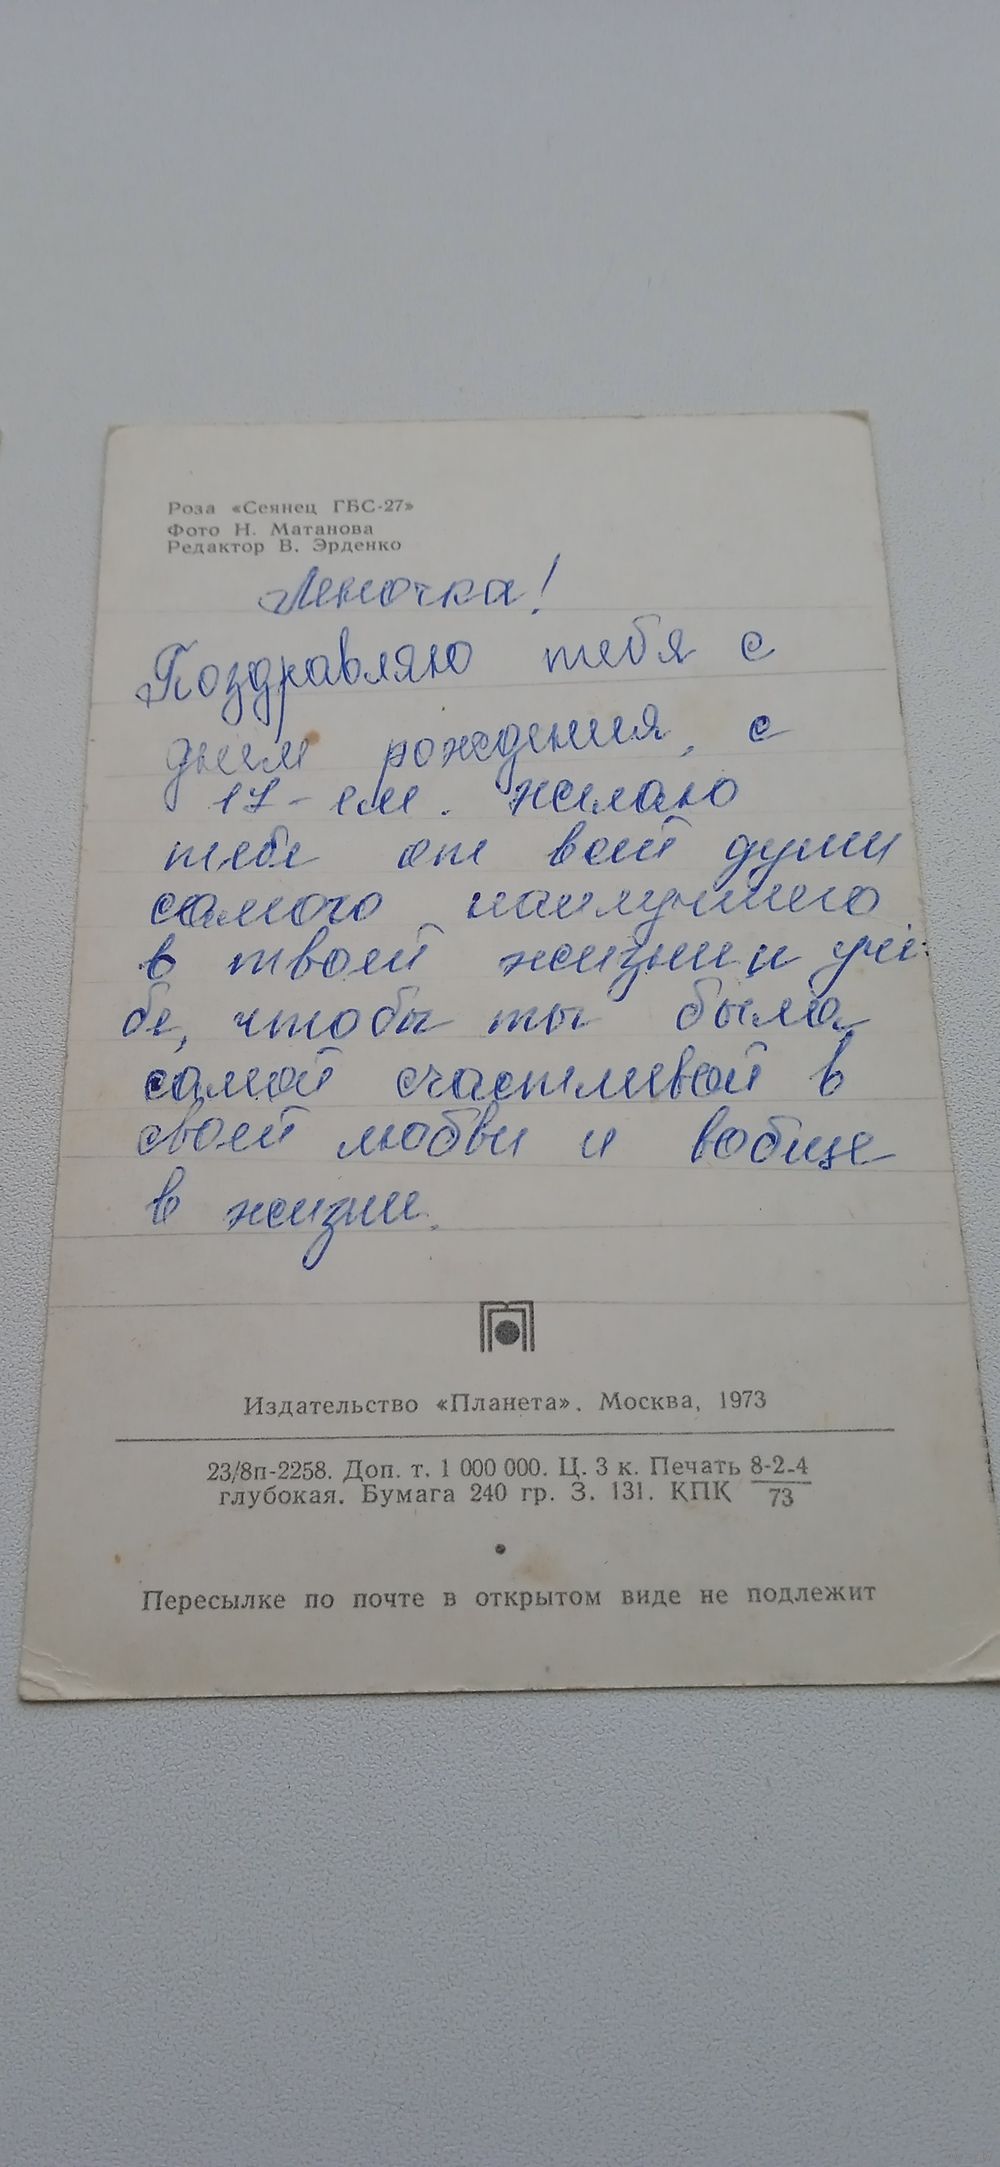 Роза «Сеянец ГБС-27»
Фото Н. Матанова
Редактор В. Эрденко
Леночка!
Поздравляю тебя с
днем рождения, с
17-ем. желаю
тебе от всей души
самого наилучшего
в твоей жизни и учё-
бе, чтобы ты была
самой счастливой в
своей любви и вобще
в жизни.
Издательство «Планета». Москва, 1973
23/8п-2258. Доп. т. 1 000 000. Ц. 3 к. Печать 8-2-4
глубокая. Бумага 240 гр. З. 131. КПК 73
Пересылке по почте в открытом виде не подлежит